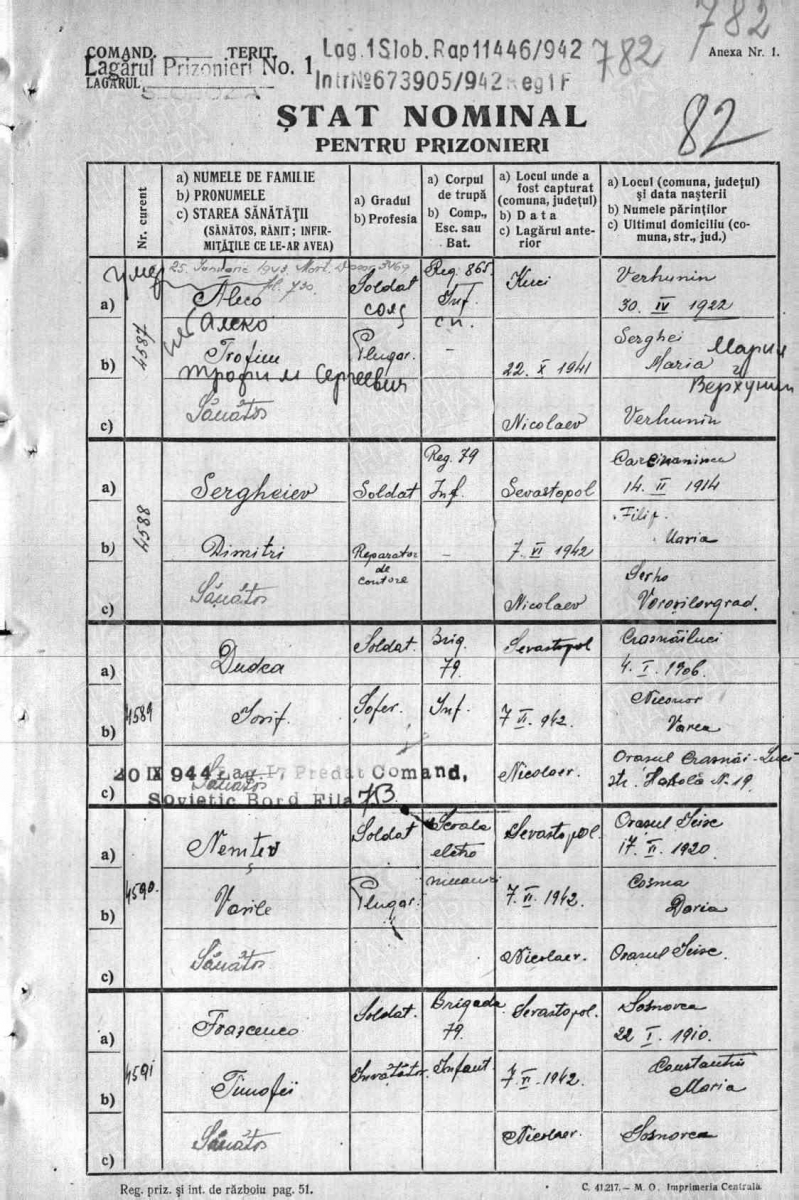 782
COMAND. TERIT.
Lagărul Prizonieri No. 1
LAGĂRUL
Lag. 1 Slob. Rap 11446/942
782
Intr № 673905/942 Reg 1 F
Anexa Nr. 1.
ȘTAT NOMINAL
PENTRU PRIZONIERI
82
Nr. curent
a) NUMELE DE FAMILIE
b) PRONUMELE
c) STAREA SĂNĂTĂȚII
(SĂNĂTOS, RĂNIT; INFIR-
MITĂȚILE CE LE-AR AVEA)
a) Gradul
b) Profesia
a) Corpul
de trupă
b) Comp.,
Esc. sau
Bat.
a) Locul unde a
fost capturat
(comuna, județul)
b) Data
c) Lagărul ante-
rior
a) Locul (comuna, județul)
și data nașterii
b) Numele părinților
c) Ultimul domiciliu (co-
muna, str., jud.)
4587
умер
25. Ianuarie 1943. Mort.
a)
Aleco
Алеко
Soldat
солд
Reg. 865.
Inf
сп.
Kuci
Verhunin
30. IV 1922
b)
Trofim
Трофим Сергеевич
Plugar.
–
22. X 1941
Serghei
Maria Мария
Верхунин
c)
Sănătos
Nicolaev
Verhunin
4588
a)
Sergheiev
Soldat
Reg. 79
Inf.
Sevastopol
14. II 1914
b)
Dimitri
Reparator
de
contore
–
7. VI 1942
Filip.
Maria
c)
Sănătos
Nicolaev
Serho
Voroșilovgrad.
4589
a)
Dudca
Soldat.
Brig.
79.
Sevastopol
Crasnăiluci
4. I. 1906.
b)
Iosif.
Șofer.
Inf.
7 VI. 942.
Niconor
Varea
c)
Sănătos
20 IX 944 Lag. 1, Predat Comand,
Sovietic Bord Fila 73.
Nicolaev.
Orasul Crasnăi-Luci
str. N. 19.
4590.
a)
Nemțev
Soldat
Scoala
eletro
mecanici
Sevastopol.
Orasul Seise
17. II. 1920.
b)
Vasile
Plugar.
7. VI. 1942.
Cosma
Daria
c)
Sănătos
Nicolaev.
Orasul Seise.
4591
a)
Frascenco
Soldat.
Brigada
79.
Sevastopol.
Sosnovca
22 I. 1910.
b)
Timofei
Invătător.
Infant.
7. VI. 1942.
Constantin
Maria
c)
Sănătos
Nicolaev.
Sosnovca
Reg. priz. și int. de războiu pag. 51.
C. 41.217. — M. O. Imprimeria Centrală.